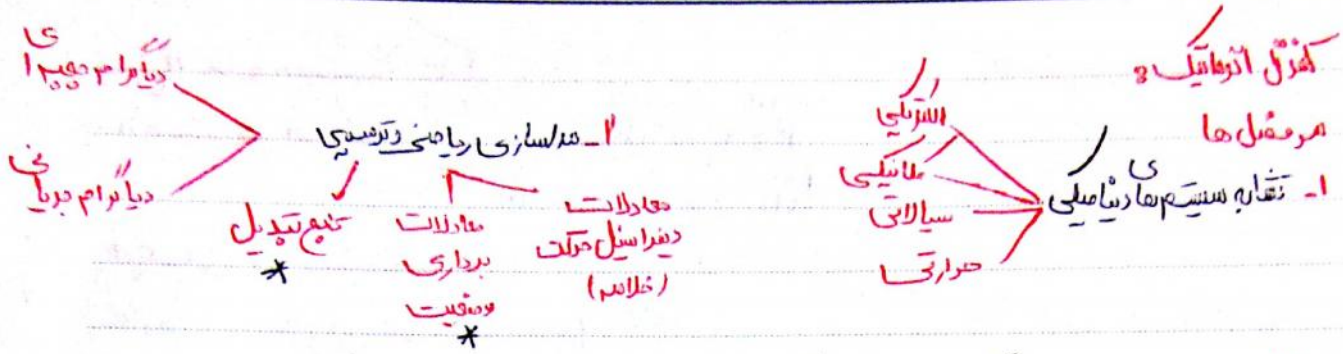 کنترل اتوماتیک:
سرفصل ها
۱- تشابه سیستم های دینامیکی
الکتریکی
مکانیکی
سیالاتی
حرارتی
۲- مدلسازی ریاضی و ترسیمی
معادلات
دیفرانسیل حرکت
(خلاصه)
معادلات
برداری
وضعیت
*
تابع تبدیل
*
دیاگرام جعبه ای
دیاگرام جریانی